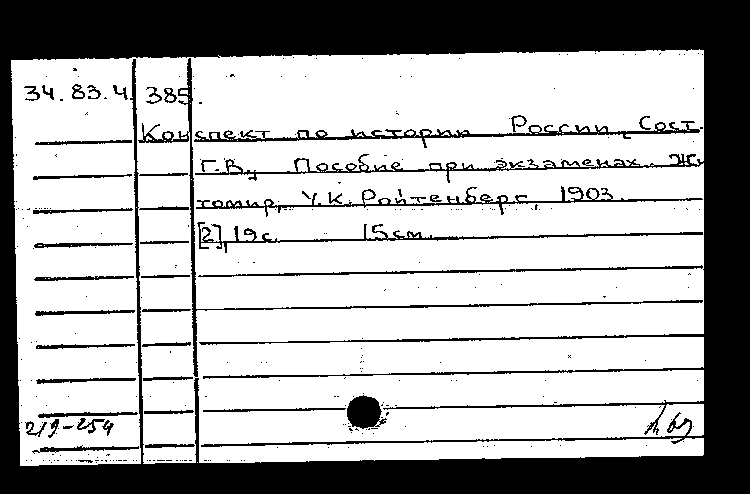 34.83.4. 385.
Конспект по истории России, Сост.
Г.В., Пособие при экзаменах. Жи-
томир, У.К. Ройтенберг, 1903.
[2], 19 с. 15 см.
219-254